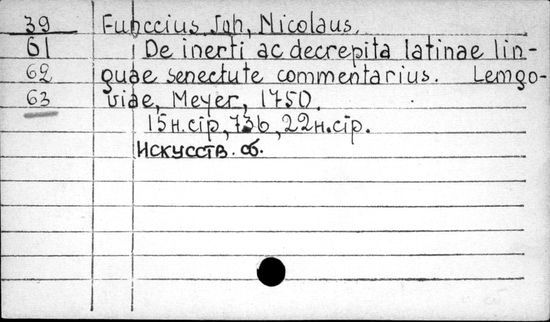 39 Funccius Joh, Nicolaus.
61 De inerti ac decrepita latinae lin-
62 guae senectute commentarius. Lemgo-
63 viae, Meyer, 1750.
15н.стр, 736, 22н.стр.
Искусств. об.